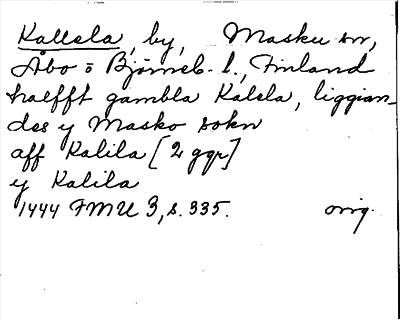 Kallela, by, Masku sn,
Åbo o Björneb. l., Finland
halfft gambla Kalela, liggian-
des y Masko sokn
aff Kalila [2 ggr]
y Kalila
1444 FMU 3, s. 335. orig.